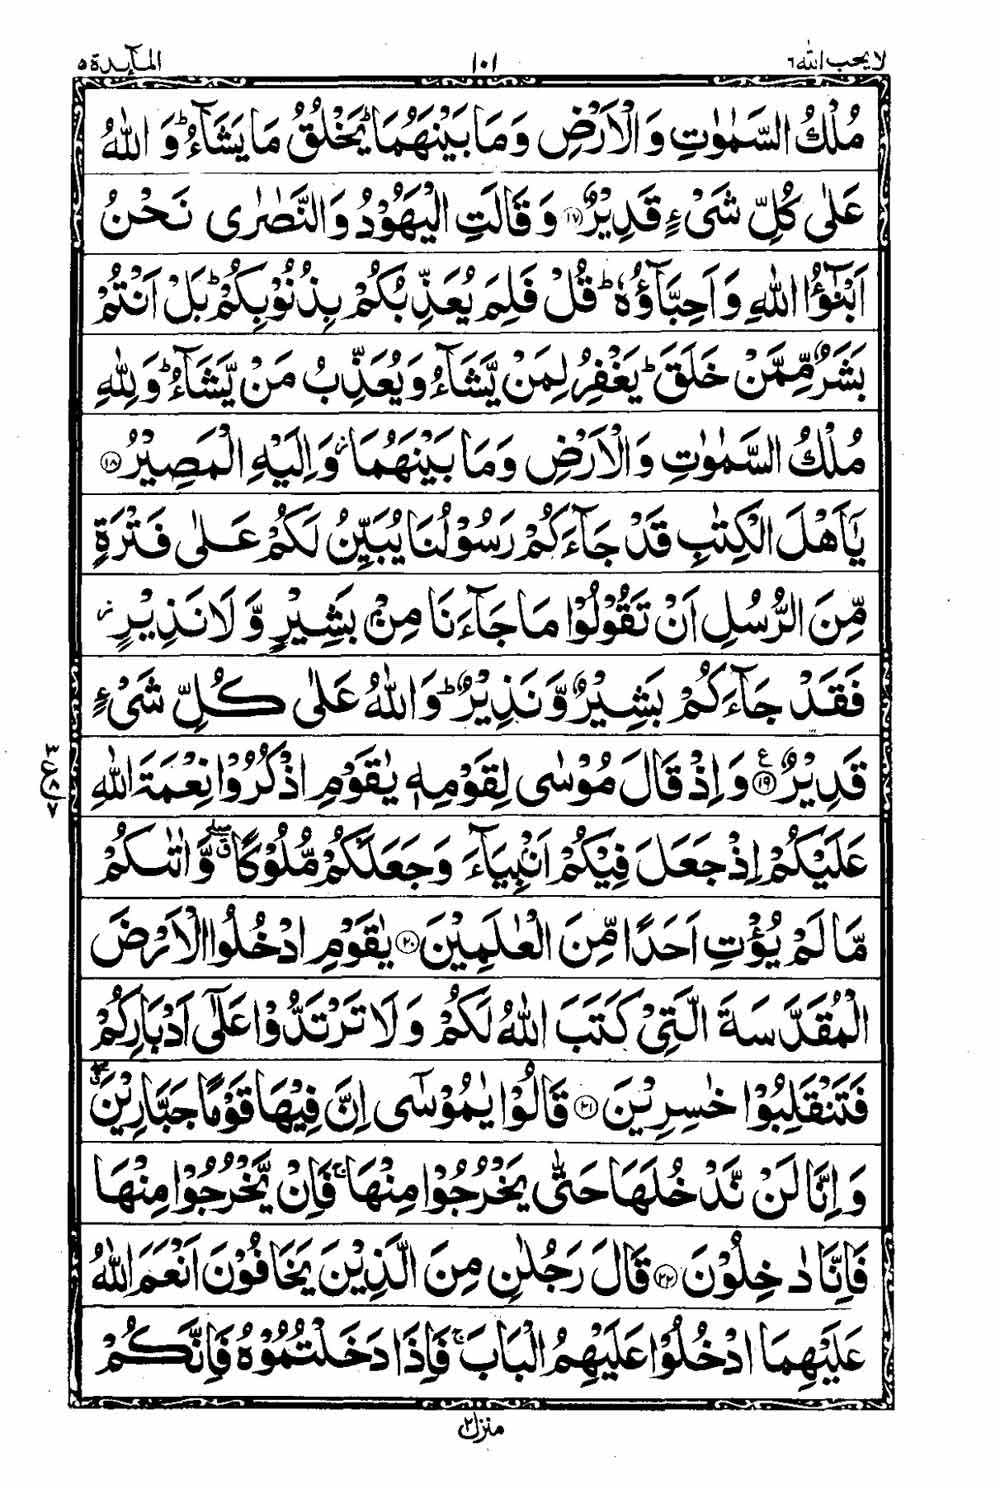 لا یحب الله ٦
١٠١
المآئدة ٥
مُلْكُ السَّمٰوٰتِ وَالْاَرْضِ وَمَا بَيْنَهُمَا ؕ يَخْلُقُ مَا يَشَآءُ ؕ وَاللّٰهُ
عَلٰى كُلِّ شَىْءٍ قَدِيْرٌ ﴿۱۷﴾ وَقَالَتِ الْيَهُوْدُ وَالنَّصٰرٰى نَحْنُ
اَبْنٰٓؤُا اللّٰهِ وَاَحِبَّآؤُهٗ ؕ قُلْ فَلِمَ يُعَذِّبُكُمْ بِذُنُوْبِكُمْ ؕ بَلْ اَنْتُمْ
بَشَرٌ مِّمَّنْ خَلَقَ ؕ يَغْفِرُ لِمَنْ يَّشَآءُ وَيُعَذِّبُ مَنْ يَّشَآءُ ؕ وَلِلّٰهِ
مُلْكُ السَّمٰوٰتِ وَالْاَرْضِ وَمَا بَيْنَهُمَا ز وَاِلَيْهِ الْمَصِيْرُ ﴿۱۸﴾
يٰۤاَهْلَ الْكِتٰبِ قَدْ جَآءَكُمْ رَسُوْلُنَا يُبَيِّنُ لَكُمْ عَلٰى فَتْرَةٍ
مِّنَ الرُّسُلِ اَنْ تَقُوْلُوْا مَا جَآءَنَا مِنْۢ بَشِيْرٍ وَّلَا نَذِيْرٍ ز
فَقَدْ جَآءَكُمْ بَشِيْرٌ وَّنَذِيْرٌ ؕ وَاللّٰهُ عَلٰى كُلِّ شَىْءٍ
قَدِيْرٌ ﴿۱۹﴾ ع وَاِذْ قَالَ مُوْسٰى لِقَوْمِهٖ يٰقَوْمِ اذْكُرُوْا نِعْمَةَ اللّٰهِ
٣
ع
٨
٧
عَلَيْكُمْ اِذْ جَعَلَ فِيْكُمْ اَنْۢبِيَآءَ وَجَعَلَكُمْ مُّلُوْكًا ۖق وَّاٰتٰىكُمْ
مَّا لَمْ يُؤْتِ اَحَدًا مِّنَ الْعٰلَمِيْنَ ﴿۲۰﴾ يٰقَوْمِ ادْخُلُوا الْاَرْضَ
الْمُقَدَّسَةَ الَّتِىْ كَتَبَ اللّٰهُ لَكُمْ وَلَا تَرْتَدُّوْا عَلٰٓى اَدْبَارِكُمْ
فَتَنْقَلِبُوْا خٰسِرِيْنَ ﴿۲۱﴾ قَالُوْا يٰمُوْسٰٓى اِنَّ فِيْهَا قَوْمًا جَبَّارِيْنَ ۖق
وَاِنَّا لَنْ نَّدْخُلَهَا حَتّٰى يَخْرُجُوْا مِنْهَا ۚ فَاِنْ يَّخْرُجُوْا مِنْهَا
فَاِنَّا دٰخِلُوْنَ ﴿۲۲﴾ قَالَ رَجُلٰنِ مِنَ الَّذِيْنَ يَخَافُوْنَ اَنْعَمَ اللّٰهُ
عَلَيْهِمَا ادْخُلُوْا عَلَيْهِمُ الْبَابَ ۚ فَاِذَا دَخَلْتُمُوْهُ فَاِنَّكُمْ
منزل ٢